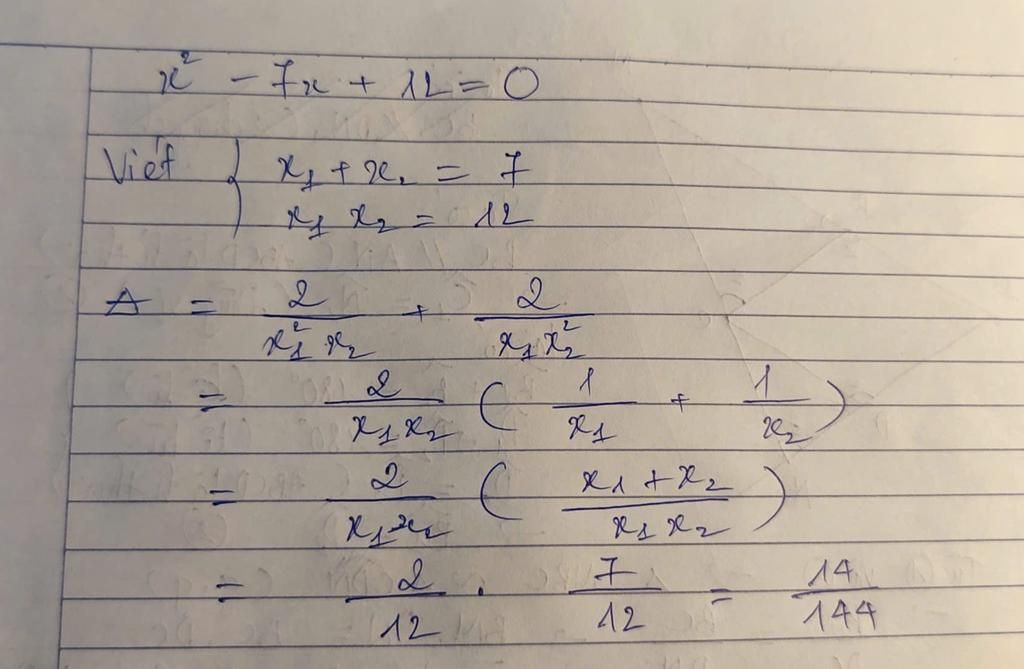 x² - 7x + 12 = 0
Viét { x₁ + x₂ = 7
x₁ x₂ = 12
A = 2/(x₁² x₂) + 2/(x₁ x₂²)
= 2/(x₁ x₂) ( 1/x₁ + 1/x₂ )
= 2/(x₁ x₂) ( (x₁ + x₂)/(x₁ x₂) )
= 2/12 . 7/12 = 14/144